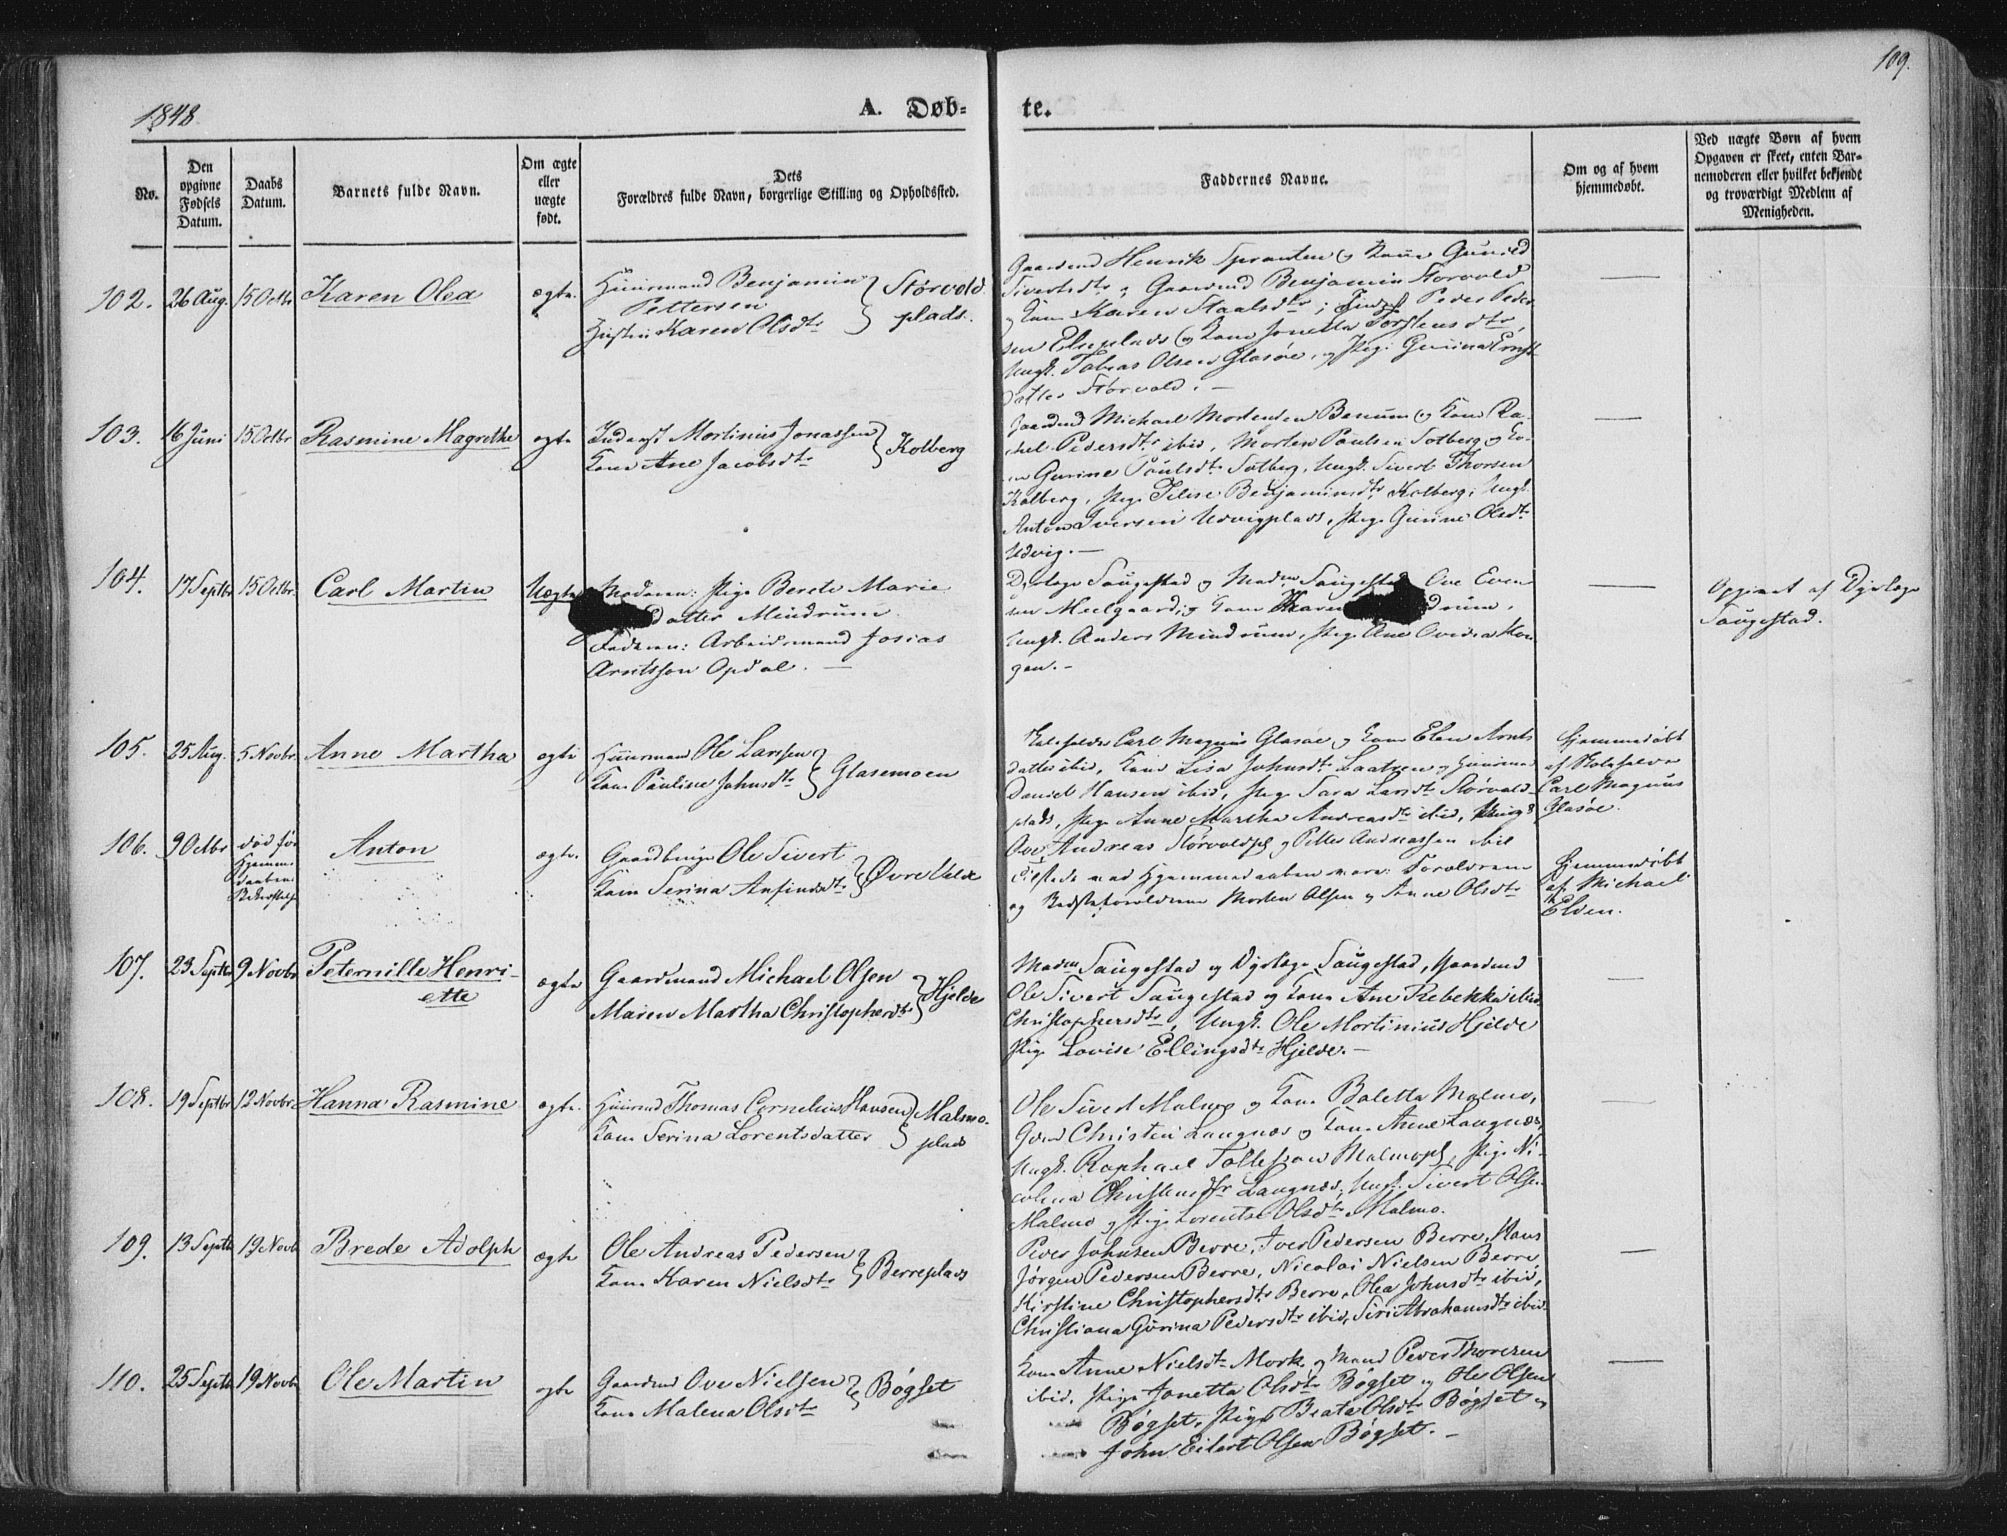 109.
1848
A. Døb-
te.
No.
Den opgivne Fødsels Datum.
Daabs Datum.
Barnets fulde Navn.
Om ægte eller uægte født.
Dets
Forældres fulde Navn, borgerlige Stilling og Opholdssted.
Faddernes Navne.
Om og af hvem hjemmedøbt.
Ved uægte Børn af hvem Opgaven er skeet, enten Barnemoderen eller hvilket bekjendt og troværdigt Medlem af Menigheden.
102. 26 Aug. 15 Octbr Karen Olea ægte.
Huusmand Benjamin
Pettersen
Karen Olsdtr
Størvold
plads.
Gaardmd Henrik og Kone Gunild
Sivertsdtr og Gaardmd Benjamin Størvold
og Kone Karen; Peder Peder
sen Eldeplads og Kone Jonetta Torstensdtr,
Ungk. Tobias Olsen Glasøe, og Pige Gurina
datter Størvold. —
103. 16 Juni 15 Octbr Rasmine Magrethe ægte
Inderst Mortinus Jonassen
Kone Ane Jacobsdtr
Kolberg
Gaardmd Michael Mortensen Benum og Kone Ra-
chel Pedersdtr ibid, Morten Paulsen Solberg og Ko-
ne Gurine Paulsdtr Solberg, Ungk. Sivert Thorsen
Kolberg, Pige Benjaminsdtr Kolberg, Ungk.
Anton Iversen Udvigplads, Pige Gurine Olsdtr
Udvig. —
104. 17 Septbr 15 Octbr. Carl Martin Uægte
Moderen: Pige Berete Marie
datter Mindrum.
Faderen: Arbeidsmand Josias
Arntsson Opdal. —
Dyrlæge Saugestad og Madm Saugestad, Ove Even
sen Meelgaard, og Kone Karen drum,
Ungk. Anders Mindrum, Pige Ane Ovedia
gen. -
Opgivet af Dyrlæge
Saugestad.
105. 25 Aug. 5 Novbr. Anne Martha ægte
Huusmand Ole Larssen
Kone Pauline Johnsdtr
Glasemoen
Carl Magnus Glasøe og Kone Elen Arnts
datter ibid, Kone Lisa Johnsdtr og Huusmd
Daniel Hansen ibid, Pige Sara Larsdtr Størvold-
plads, Pige Anne Martha Andreasdtr ibid, Ungk.
Ove Andreas Størvoldpl og Petter Andreassen ibid
Hjemmedøbt
af
Carl Magnus
Glasøe.
106. 9 Octbr død før
Hjemme-
daabens
Bekræftelse
Anton ægte.
Gaardbruger Ole Sivert
Kone Serina Anfindsdtr
Øvre Velde
Tilstede ved Hjemmedaaben vare: Forældrene
og Bedsteforældrene Morten Olsen og Anne Olsdtr
Hjemmedøbt
af Michael
Elden.
107. 23 Septbr 9 Novbr Peternille Henri-
ette
ægte
Gaardmand Michael Olsen
Maren Martha Christophersdtr
Hjelde
Madm Saugestad og Dyrlæge Saugestad, Gaardmd
Ole Sivert Saugestad og Kone Ane Rebekka ibid
Christophersdtr, Ungk. Ole Mortinius Hjelde
Pige Lovise Ellingsdtr Hjelde. —
108. 19 Septbr 12 Novbr. Hanna Rasmine ægte.
Huusmd Thomas Cornelius Hansen
Kone Serina Lorentsdatter
Malmo-
plads
Ole Sivert Malmo og Kone Baletta Malmo,
Gmd Christen Langnes og Kone Anne Langnes,
Ungk. Raphael Tollefsen Malmopl, Pige Ni-
colina Christensdtr Langnes, Ungk. Sivert Olsen
Malmo og Pige Lorentse Olsdtr Malmo.
109. 13 Septbr 19 Novbr Brede Adolph ægte
Ole Andreas Pedersen
Kone Karen Nielsdtr
Berreplads
Peder Johnsen Berre, Iver Pedersen Berre, Hans
Jørgen Pedersen Berre, Nicolai Nielsen Berre,
Kirstine Christophersdtr Berre, Olea Johnsdtr ibid,
Christiana Gurina Pedersdtr ibid, Siri Abrahamsdtr ibid.
110. 25 Septbr 19 Novbr Ole Martin ægte
Gaardmd Ove Nielsen
Kone Malena Olsdtr
Bøgset
Kone Anne Nielsdtr Mork og Mand Peder Thoresen
ibid, Pige Jonetta Olsdtr Bøgset og Ole Olsen
Bøgset, Pige Beata Olsdtr Bøgset og
John Eilert Olsen Bøgset. —